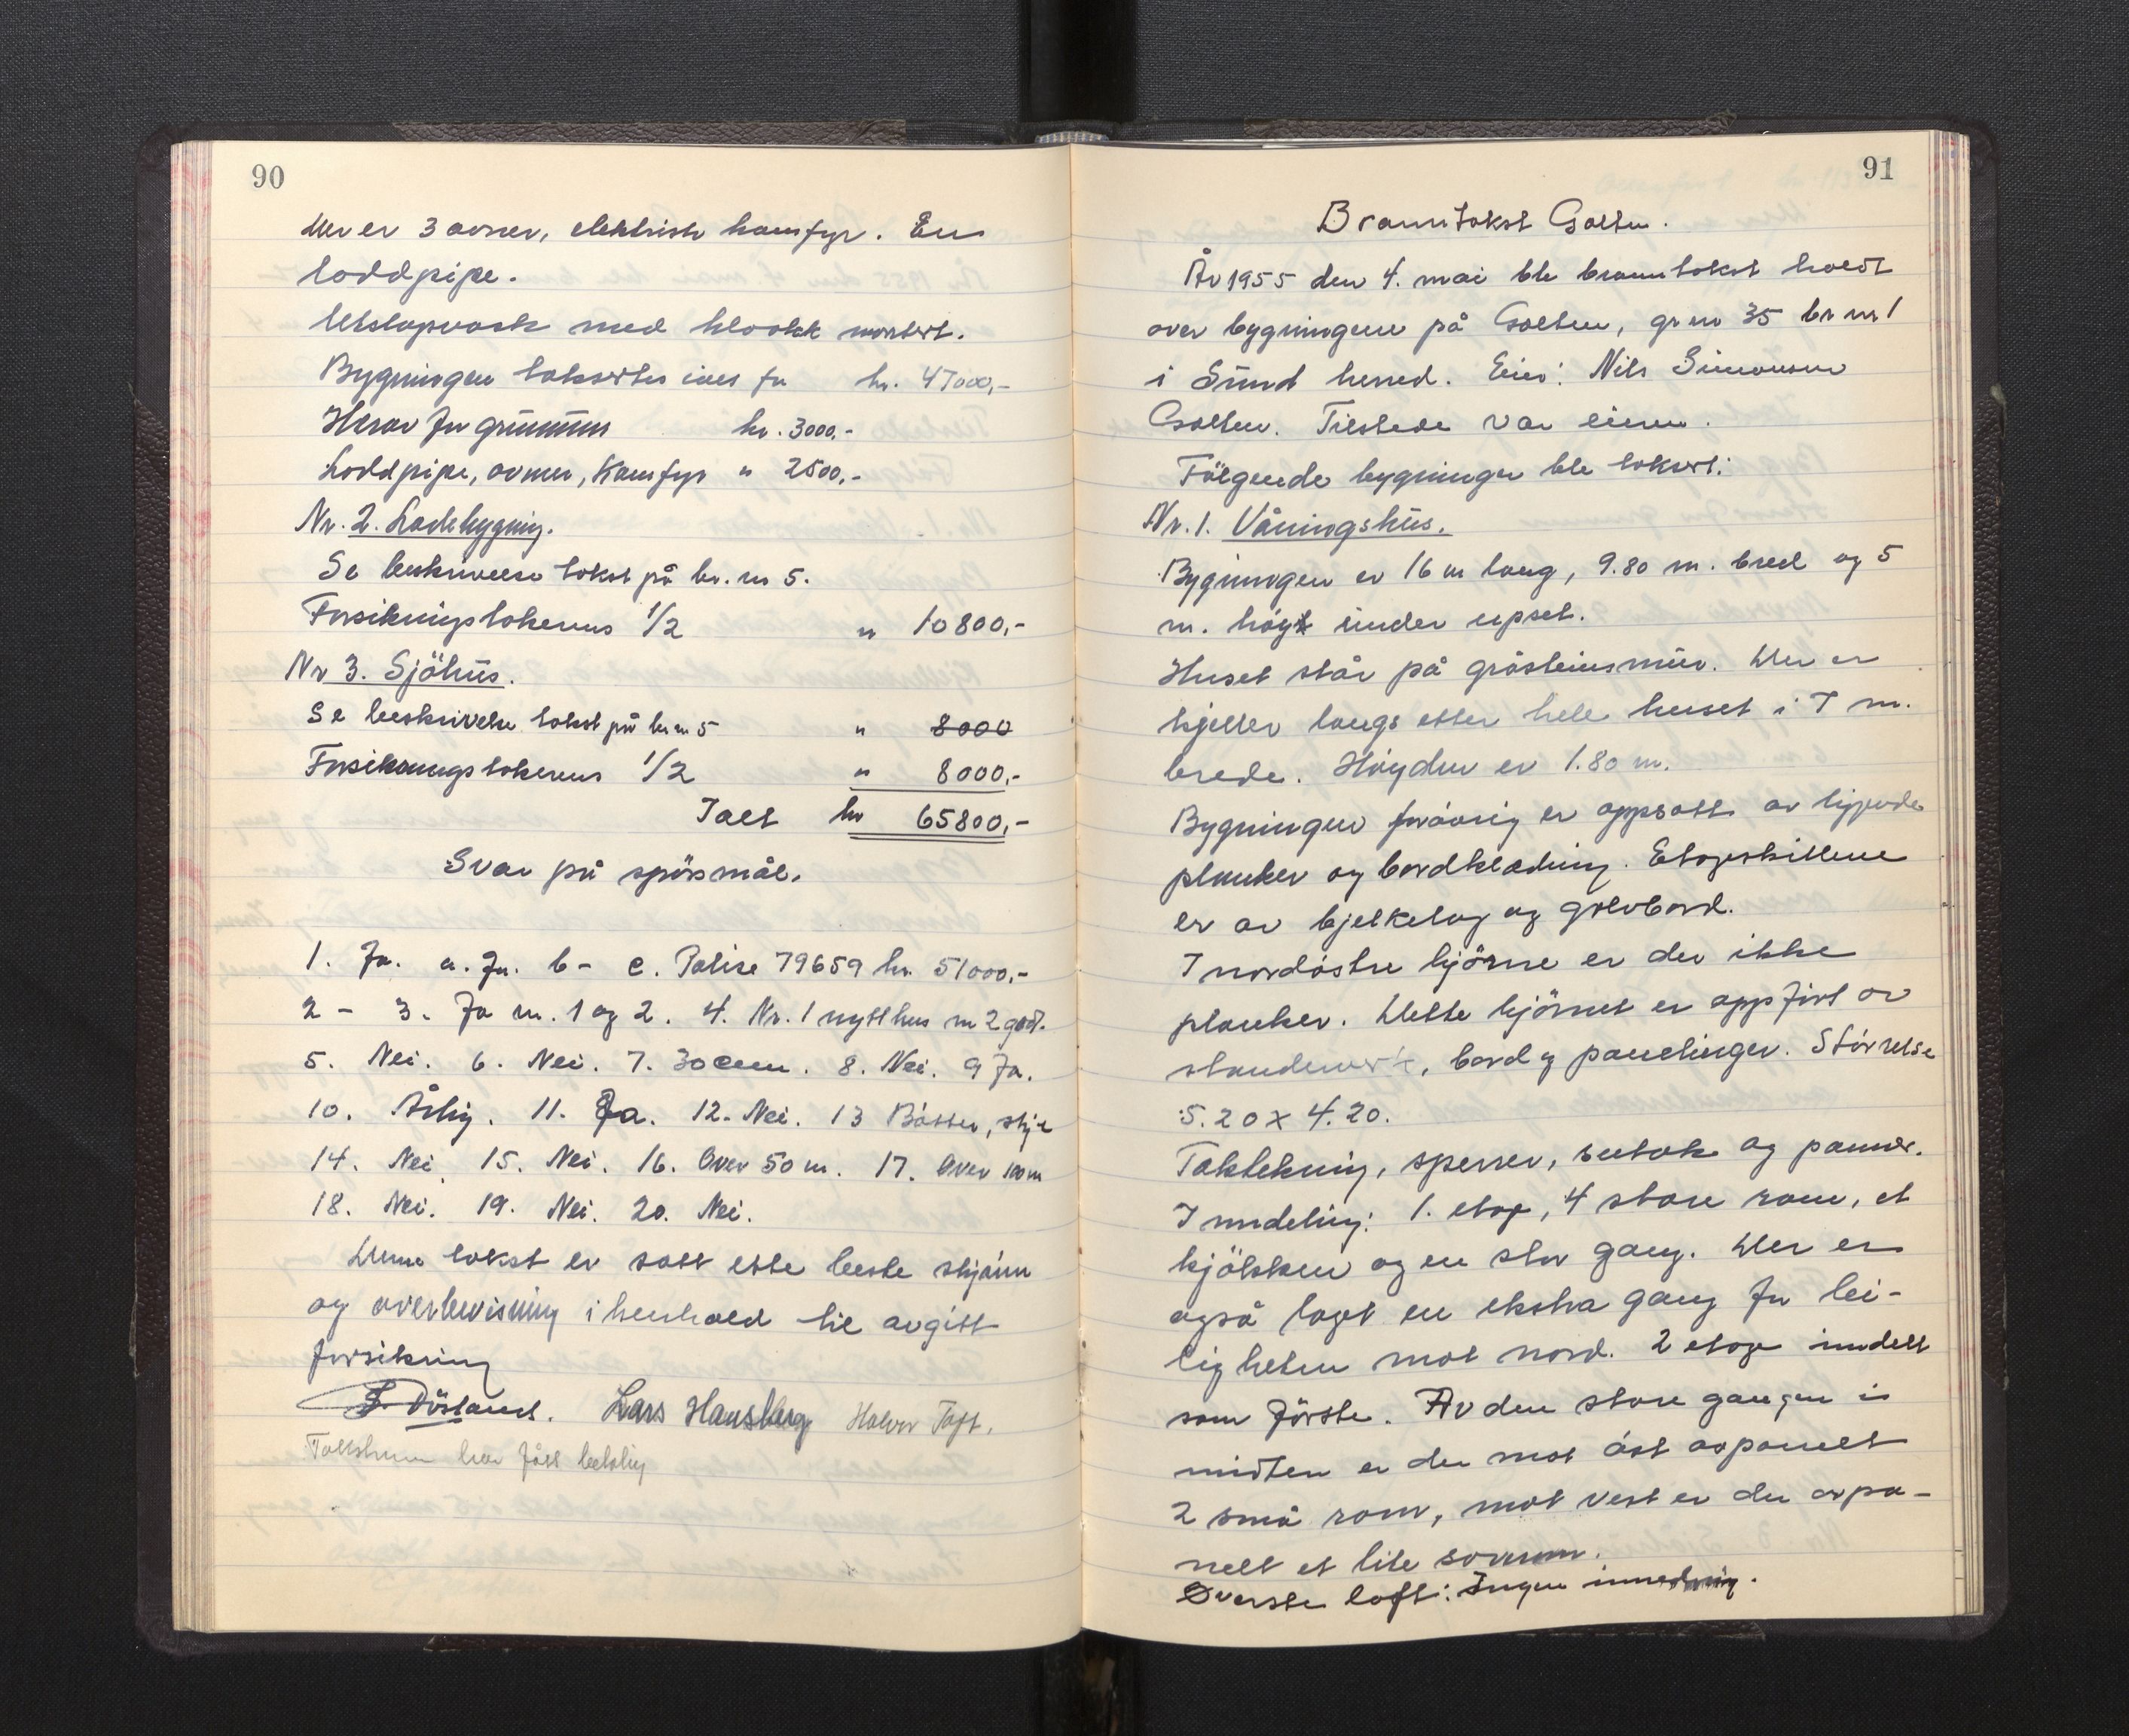 90
Der er 3 ovner, elektrisk komfyr. En
loddpipe.
Utslagsvask med kloakk montert.
Bygningen takseres ialt for kr. 47000,-
Herav for grunnmur kr. 3000,-
Loddpipe, ovner, Komfyr " 2500,-
Nr. 2. Ladebygning.
Se beskrivelse takst på br. nr 5.
Forsikringstakserus 1/2 " 10800,-
Nr 3. Sjöhus.
Se beskrivelse takst på br nr 5 " 8000
Forsikringstakserus 1/2 " 8000,-
Ialt kr 65800,-
Svar på spörsmål.
1. Ja. a. Ja. b - c. Polise 79659 kr. 51000,-
2 - 3. Ja nr. 1 og 2. 4. Nr. 1 nytt hus nr 2 god.
5. Nei. 6. Nei. 7. 30 cm. 8. Nei. 9 Ja.
10. Årlig. 11. Ja. 12. Nei. 13 Bötter, stige
14. Nei. 15. Nei. 16. Over 50 m. 17. Over 100 m
18. Nei. 19. Nei. 20. Nei.
Denne takst er satt etter beste skjönn
og overbevisning i henhold til avgitt
forsikring
Lars Hausberg Halvor Toft.
Takstmenn har fått betaling
91
Branntakst Golten.
År 1955 den 4. mai ble branntakst holdt
over bygningene på Golten, gr nr 35 br nr 1
i Sund herred. Eier: Nils Simonsen
Golten. Tilstede var eieren.
Fölgende bygninger ble taksert:
Nr. 1. Våningshus.
Bygningen er 16 m lang, 9.80 m. bred og 5
m. högt under upset.
Huset står på gråsteinsmur. Der er
kjeller langs etter hele huset i 7 m.
brede. Höyden er 1.80 m.
Bygningen forövrig er oppsatt av liggende
planker og bordkledning. Etasjeskillene
er av bjelkelag og golvbord.
I nordöstre hjörne er der ikke
planker. Dette hjörnet er oppfört av
standerverk, bord og panelinger. Störrelse
5.20 x 4.20.
Taktekning, sperrer, sutak og panner.
Inndeling: 1. etage, 4 store rom, et
kjökken og en stor gang. Der er
også laget en ekstra gang for lei-
ligheten mot nord. 2 etage inndelt
som förste. Av den store gangen i
midten er der mot öst avpanelt
2 små rom, mot vest er der avpa-
nelt et lite soverom.
Øverste loft: Ingen innredning.